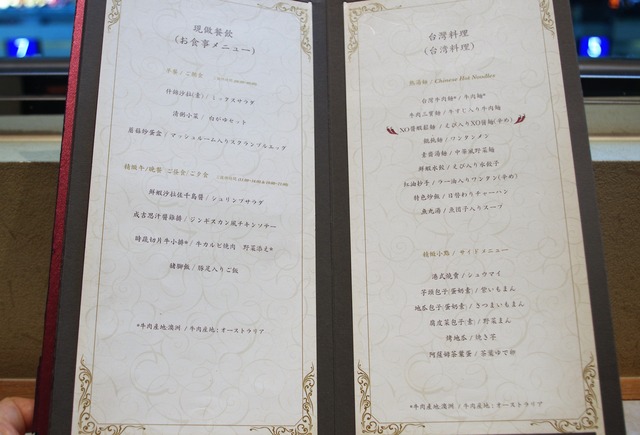 現做餐飲
(お食事メニュー)
午餐 / ご朝食
什錦沙拉(素) / ミックスサラダ
清粥小菜 / 白かゆセット
蘑菇炒蛋盒 / マッシュルーム入りスクランブルエッグ
精緻午/晚餐 / ご昼食/ご夕食
鮮蝦沙拉佐千島醬 / シュリンプサラダ
成吉思汗醬雞排 / ジンギスカン風チキンソテー
時蔬切片牛小排* / 牛カルビ焼肉 野菜添え*
豬腳飯 / 豚足入りご飯
*牛肉產地:澳洲 / 牛肉産地:オーストラリア
台灣料理
(台湾料理)
熱湯麵 / Chinese Hot Noodles
台灣牛肉麵* / 牛肉麺*
牛肉三寶麵 / 牛すじ入り牛肉麺
XO醬蝦鬆麵 / えび入りXO醤麺(辛め)
餛飩麵 / ワンタンメン
素醬湯麵 / 中華風野菜麺
鮮蝦水餃 / えび入り水餃子
紅油抄手 / ラー油入りワンタン(辛め)
特色炒飯 / 日替わりチャーハン
魚丸湯 / 魚団子入りスープ
精緻小點 / サイドメニュー
港式燒賣 / シュウマイ
芋頭包子(蛋奶素) / 紫いもまん
地瓜包子(蛋奶素) / さつまいもまん
蔬皮菜包子(素) / 野菜まん
烤地瓜 / 焼き芋
阿薩姆茶葉蛋 / 茶葉ゆで卵
*牛肉產地:澳洲 / 牛肉産地:オーストラリア